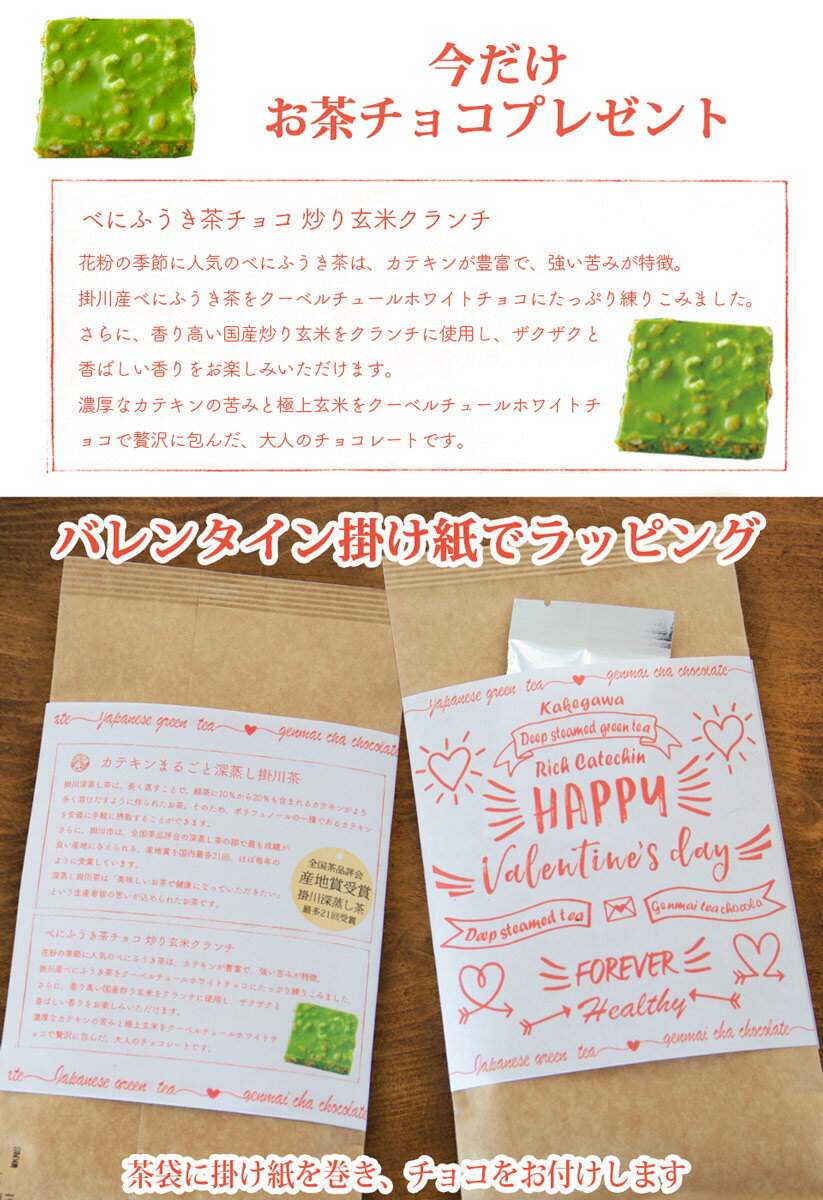 今だけ
お茶チョコプレゼント
べにふうき茶チョコ 炒り玄米クランチ
花粉の季節に人気のべにふうき茶は、カテキンが豊富で、強い苦みが特徴。
掛川産べにふうき茶をクーベルチュールホワイトチョコにたっぷり練りこみました。
さらに、香り高い国産炒り玄米をクランチに使用し、ザクザクと
香ばしい香りをお楽しみいただけます。
濃厚なカテキンの苦みと極上玄米をクーベルチュールホワイトチ
ョコで贅沢に包んだ、大人のチョコレートです。
バレンタイン掛け紙でラッピング
ate Japanese green tea genmai cha chocolate
カテキンまるごと深蒸し掛川茶
掛川深蒸し茶は、長く蒸すことで、緑茶に10%から20%も含まれるカテキンがより
多く溶けだすように作られたお茶。そのため、ポリフェノールの一種であるカテキン
を安価に手軽に摂取することができます。
さらに、掛川市は、全国茶品評会の深蒸し茶の部で最も成績が
良い産地に与えられる、産地賞を国内最多21回、ほぼ毎年の
ように受賞しています。
深蒸し掛川茶は「美味しいお茶で健康になっていただきたい」
という生産者皆の思いが込められたお茶です。
全国茶品評会
産地賞受賞
掛川深蒸し茶
最多21回受賞
べにふうき茶チョコ 炒り玄米クランチ
花粉の季節に人気のべにふうき茶は、カテキンが豊富で、強い苦みが特徴。
掛川産べにふうき茶をクーベルチュールホワイトチョコにたっぷり練りこみました。
さらに、香り高い国産炒り玄米をクランチに使用し、ザクザクと
香ばしい香りをお楽しみいただけます。
濃厚なカテキンの苦みと極上玄米をクーベルチュールホワイトチ
ョコで贅沢に包んだ、大人のチョコレートです。
ate Japanese green tea genmai cha chocolate
Japanese green tea genmai cha chocolate
Kakegawa
Deep steamed green tea
Rich Catechin
HAPPY
Valentine's day
Deep steamed tea
Genmai tea chocola
FOREVER
Healthy
Japanese green tea genmai cha chocolate
茶袋に掛け紙を巻き、チョコをお付けします